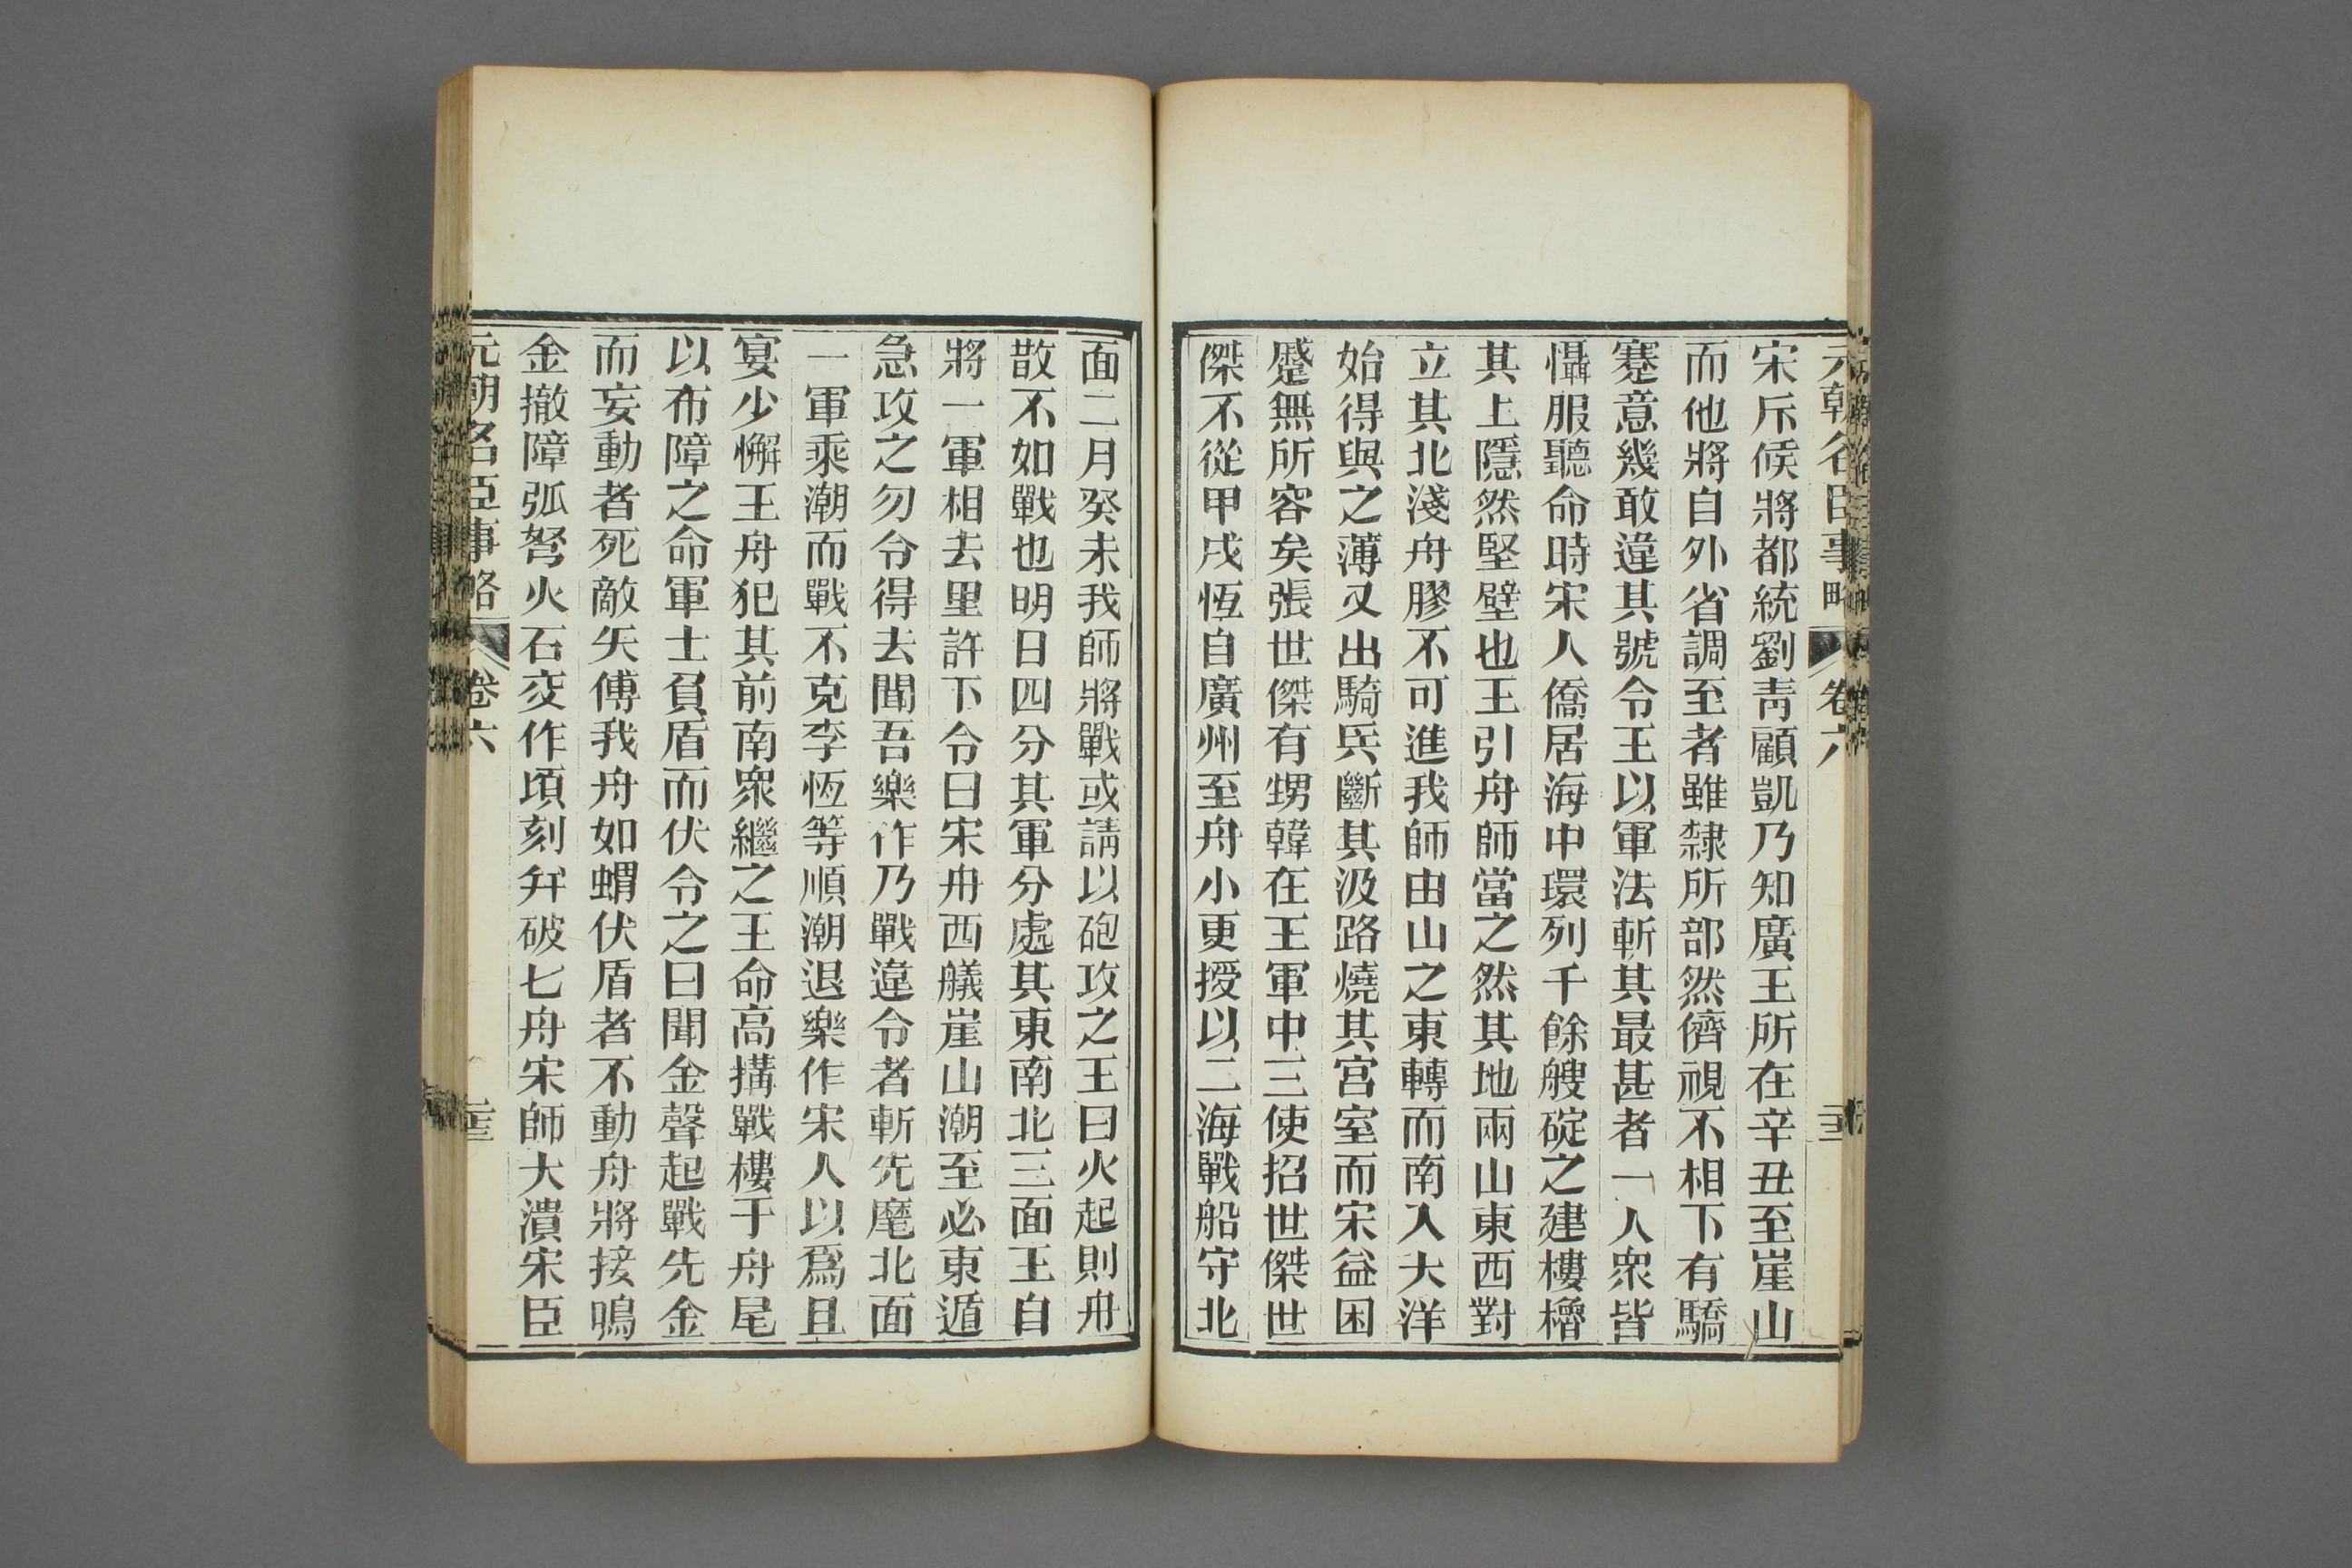 元朝名臣事略 卷六
宋斥候將都統劉靑顧凱乃知廣王所在辛丑至崖山
而他將自外省調至者雖隸所部然儕視不相下有驕
蹇意幾敢違其號令王以軍法斬其最甚者一人衆皆
懾服聽命時宋人僑居海中環列千餘艘碇之建樓櫓
其上隱然堅壁也王引舟師當之然其地兩山東西對
立其北淺舟膠不可進我師由山之東轉而南入大洋
始得與之薄又出騎兵斷其汲路燒其宮室而宋益困
蹙無所容矣張世傑有甥韓在王軍中三使招世傑世
傑不從甲戌恆自廣州至舟小更授以二海戰船守北
面二月癸未我師將戰或請以砲攻之王曰火起則舟
散不如戰也明日四分其軍分處其東南北三面王自
將一軍相去里許下令曰宋舟西艤崖山潮至必東遁
急攻之勿令得去聞吾樂作乃戰違令者斬先麾北面
一軍乘潮而戰不克李恆等順潮退樂作宋人以爲且
宴少懈王舟犯其前南衆繼之王命高搆戰樓于舟尾
以布障之命軍士負盾而伏令之曰聞金聲起戰先金
而妄動者死敵矢傅我舟如蝟伏盾者不動舟將接鳴
金撤障弧弩火石交作頃刻幷破七舟宋師大潰宋臣
元朝名臣事略 卷六